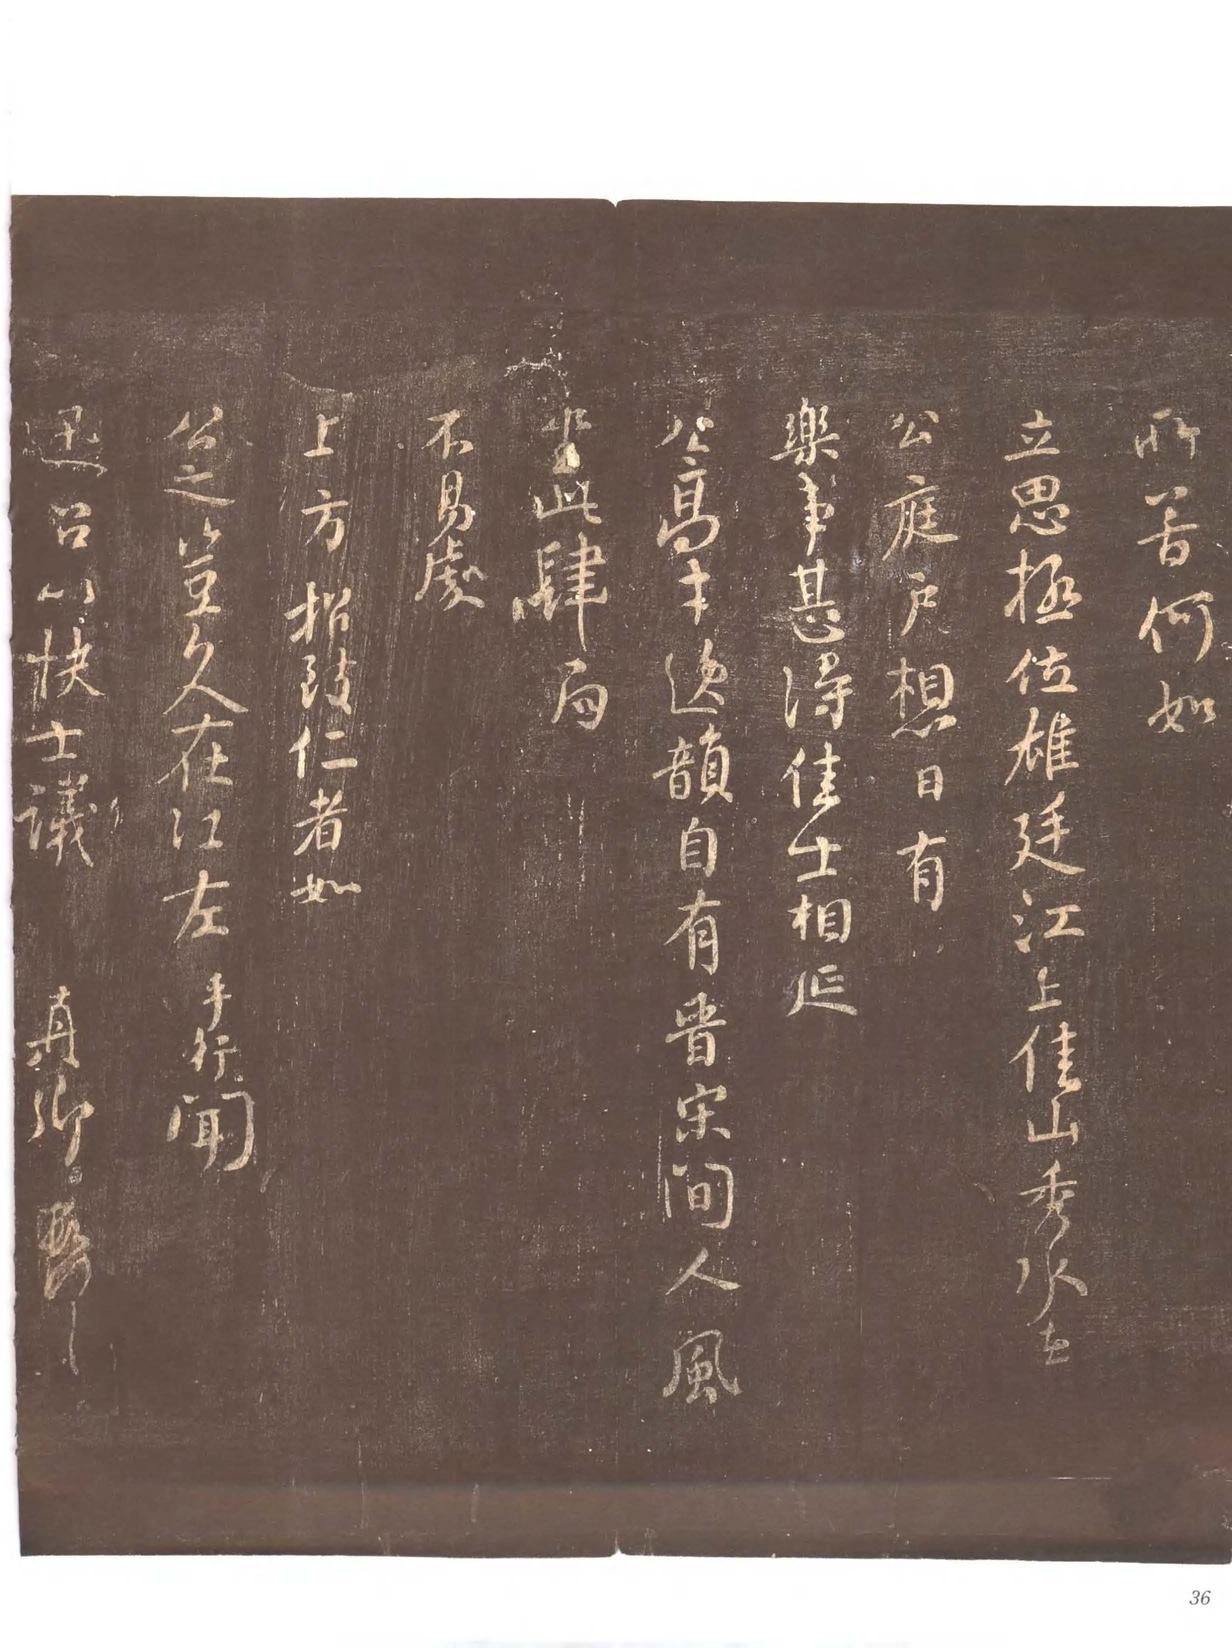 所苦何如
立思極位雄廷江上佳山秀水在
公庭戶想日有
樂事甚得佳士相延
公高才逸韻自有晉宋間人風
此肆局
不易處
上方招致仁者如
公之豈久在江左手行聞
迅召以快士議 真卿
36